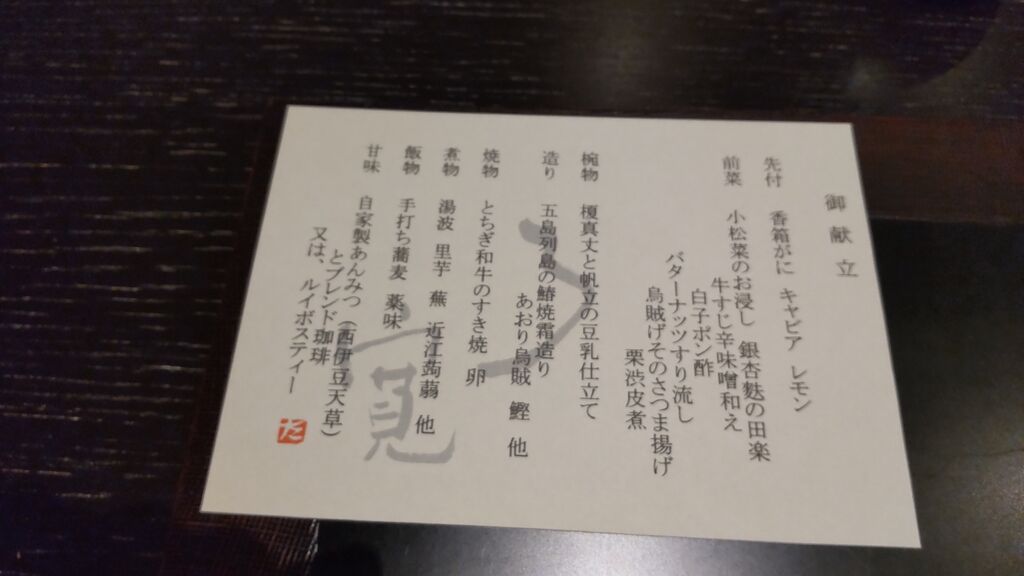 御献立
先付　香箱がに　キャビア　レモン
前菜　小松菜のお浸し　銀杏麩の田楽
牛すじ辛味噌和え
白子ポン酢
バターナッツすり流し
烏賊げそのさつま揚げ
栗渋皮煮
椀物　榎真丈と帆立の豆乳仕立て
造り　五島列島の鰆焼霜造り
あおり烏賊　鰹　他
焼物　とちぎ和牛のすき焼　卵
煮物　湯波　里芋　蕪　近江蒟蒻　他
飯物　手打ち蕎麦　薬味
甘味　自家製あんみつ（西伊豆天草）
とブレンド珈琲
又は、ルイボスティー